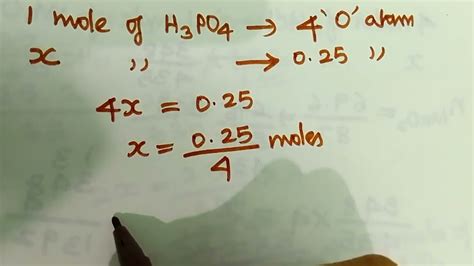 1 mole of H₃PO₄ → 4 'O' atom
x ,, → 0.25 ,,
4x = 0.25
x = 0.25/4 moles